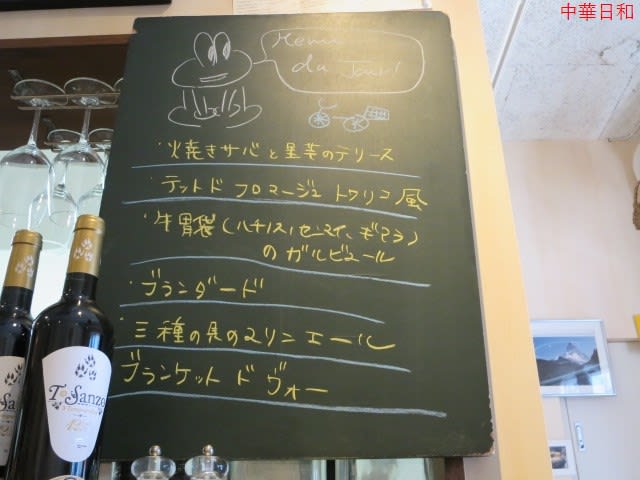 中華日和
Menu
du Jour!
・火焼きサバと里芋のテリーヌ
・テット ド フロマージュ トワリコ風
・牛胃袋(ハチノス,センマイ,ギアラ)
のガルビュール
・ブランダード
・三種の貝のマリンエール
ブランケット ド ヴォー
Sanzo